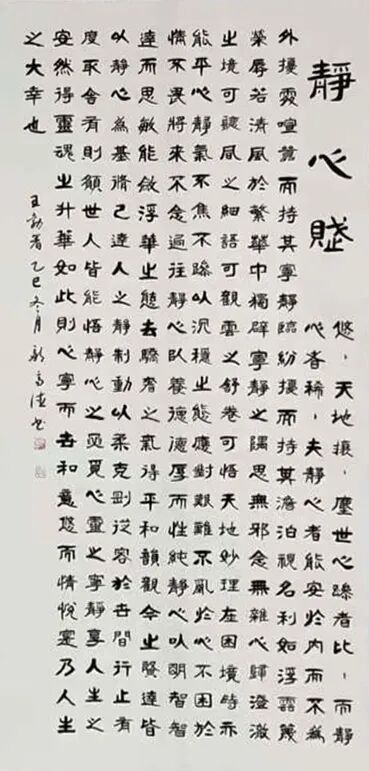 靜心賦
悠々天地攘々塵世心躁者比々而靜
心者稀々夫靜心者能安於內而不為
外擾處喧囂而持其寧靜臨紛擾而持其澹泊視名利如浮雲蔑
榮辱若清風於繁華中獨辟寧靜之隅思無邪念無雜心歸澄澈
之境可聽風之細語可觀雲之舒卷可悟天地妙理在困境時亦
能平心靜氣不焦不躁以沉穩之態應對艱難不亂於心不困於
情不畏將來不念過往靜心以養德德厚而性純靜心以明智智
達而思敏能斂浮華之態去驕奢之氣得平和韻觀今之賢達皆
以靜心為基濟己達人之靜制動以柔克剛從容於世間行止有
度取舍有則願世人皆能悟靜心之奧覓心靈之寧靜享人生之
安然得靈魂之升華如此則心寧而世和意悠而情悅寔乃人生
之大幸也
乙巳冬月